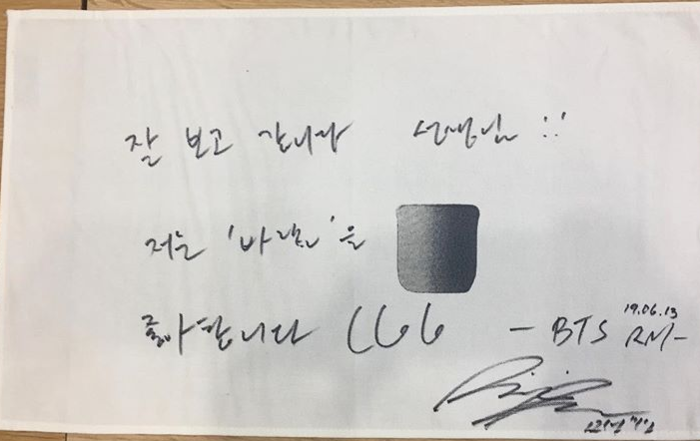 잘 보고 갑니다 선생님 : :
저는 '바람'을
좋아합니다
19.06.13
- BTS RM-